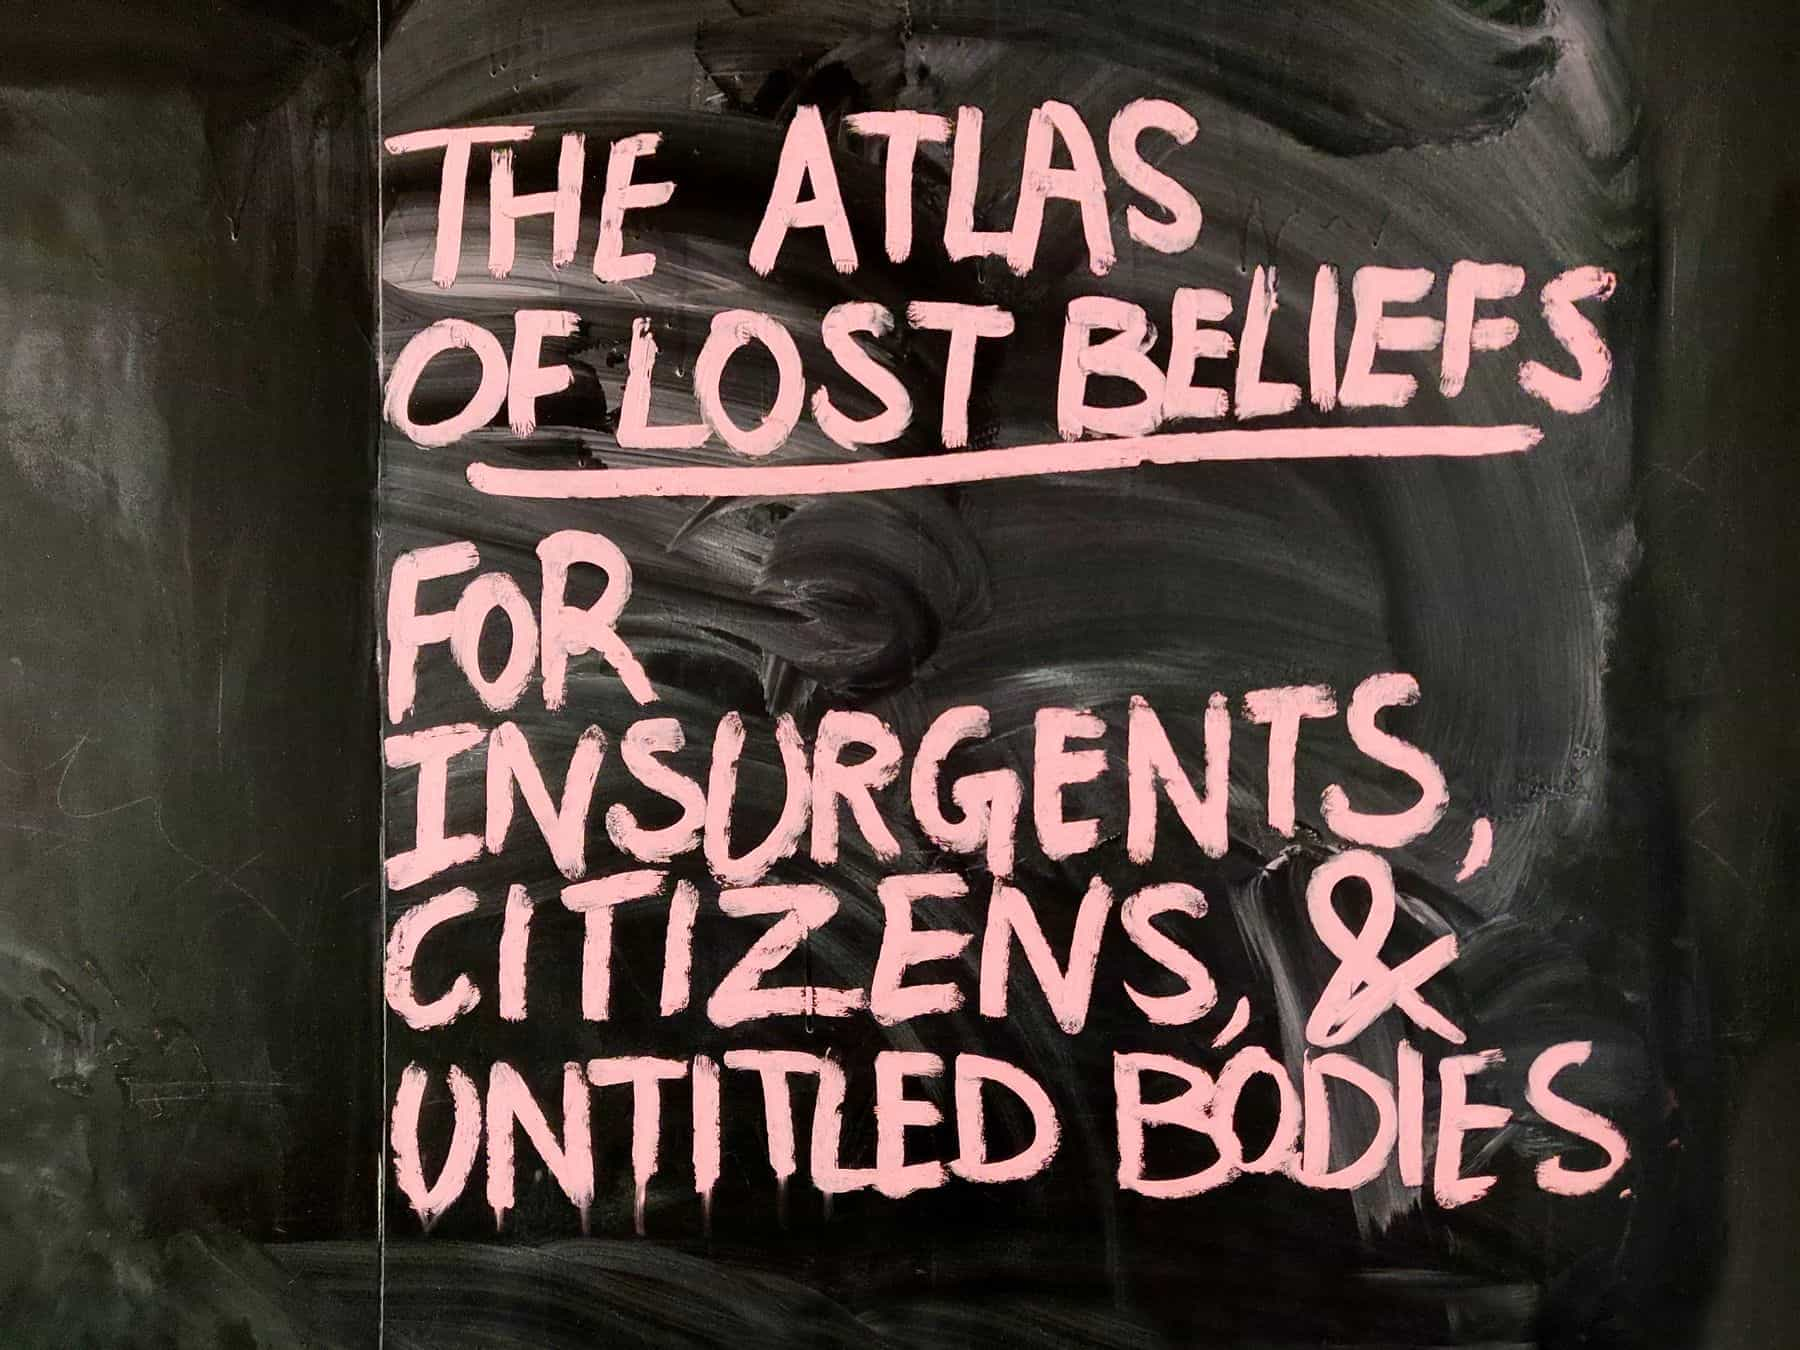 THE ATLAS
OF LOST BELIEFS
FOR
INSURGENTS,
CITIZENS, &
UNTITLED BODIES.